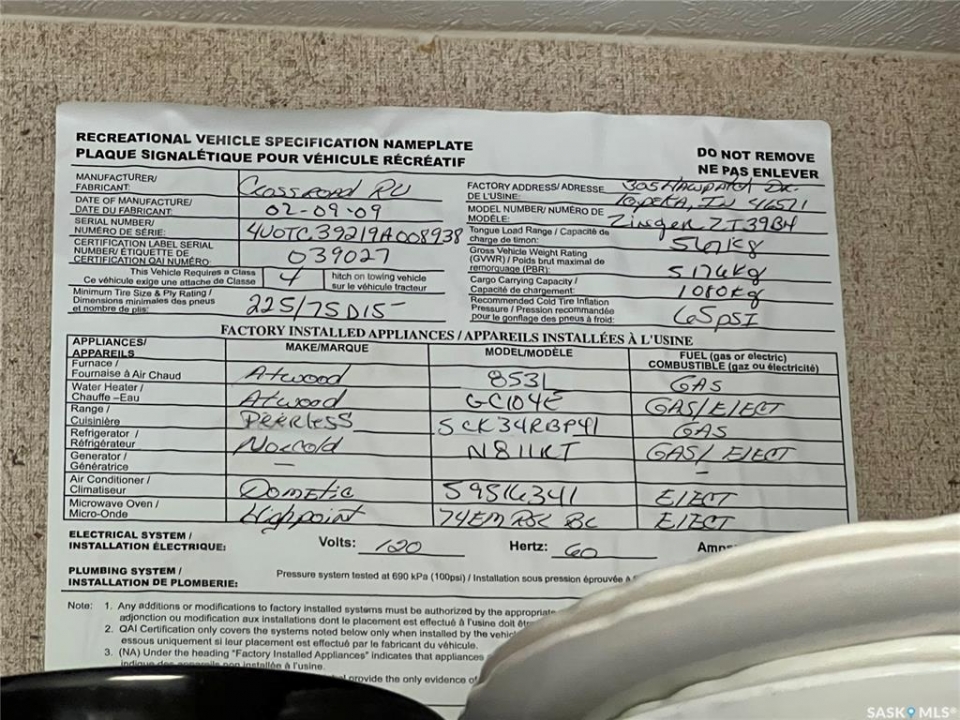 RECREATIONAL VEHICLE SPECIFICATION NAMEPLATE
PLAQUE SIGNALÉTIQUE POUR VÉHICULE RÉCRÉATIF
DO NOT REMOVE
NE PAS ENLEVER
MANUFACTURER/
FABRICANT:
Crossroad RV
DATE OF MANUFACTURE/
DATE DU FABRICANT:
02-09-09
SERIAL NUMBER/
NUMÉRO DE SÉRIE:
4U0TC39219A008938
CERTIFICATION LABEL SERIAL
NUMBER/ÉTIQUETTE DE
CERTIFICATION QAI NUMÉRO:
039027
This Vehicle Requires a Class
Ce véhicule exige une attache de Classe
4
hitch on towing vehicle
sur le véhicule tracteur
Minimum Tire Size & Ply Rating /
Dimensions minimales des pneus
et nombre de plis:
225/75D15
FACTORY ADDRESS/ADRESSE
DE L'USINE:
305 Hawpatch Dr.
Topeka, IN 46571
MODEL NUMBER/NUMÉRO DE
MODÈLE:
Zinger ZT39BH
Tongue Load Range / Capacité de
charge de timon:
Kg
Gross Vehicle Weight Rating
(GVWR) / Poids brut maximal de
remorquage (PBR):
5176Kg
Cargo Carrying Capacity /
Capacité de chargement:
1080Kg
Recommended Cold Tire Inflation
Pressure / Pression recommandée
pour le gonflage des pneus à froid:
65 PSI
FACTORY INSTALLED APPLIANCES / APPAREILS INSTALLÉES À L'USINE
APPLIANCES/
APPAREILS
MAKE/MARQUE
MODEL/MODÈLE
FUEL (gas or electric)
COMBUSTIBLE (gaz ou électricité)
Furnace /
Fournaise à Air Chaud
Atwood
8531
GAS
Water Heater /
Chauffe –Eau
Atwood
GC104E
GAS/ElECT
Range /
Cuisinière
PEERLESS
SCK34RBP41
GAS
Refrigerator /
Réfrigérateur
Norcold
N811RT
GAS/ElECT
Generator /
Génératrice
—
–
Air Conditioner /
Climatiseur
Dometic
59516341
ElECT
Microwave Oven /
Micro-Onde
Highpoint
ElECT
ELECTRICAL SYSTEM /
INSTALLATION ÉLECTRIQUE:
Volts: 120
Hertz: 60
PLUMBING SYSTEM /
INSTALLATION DE PLOMBERIE:
Pressure system tested at 690 kPa (100psi) / Installation sous pression éprouvée à
Note: 1. Any additions or modifications to factory installed systems must be authorized by the appropriate
adjonction ou modification aux installations dont le placement est effectué à l'usine doit
2. QAI Certification only covers the systems noted below only when installed by the
essous uniquement si leur placement est effectué par le fabricant du véhicule.
3. (NA) Under the heading "Factory Installed Appliances" indicates that appliances
indique des appareils non installée à l'usine.
provide the only evidence of
SASK MLS®